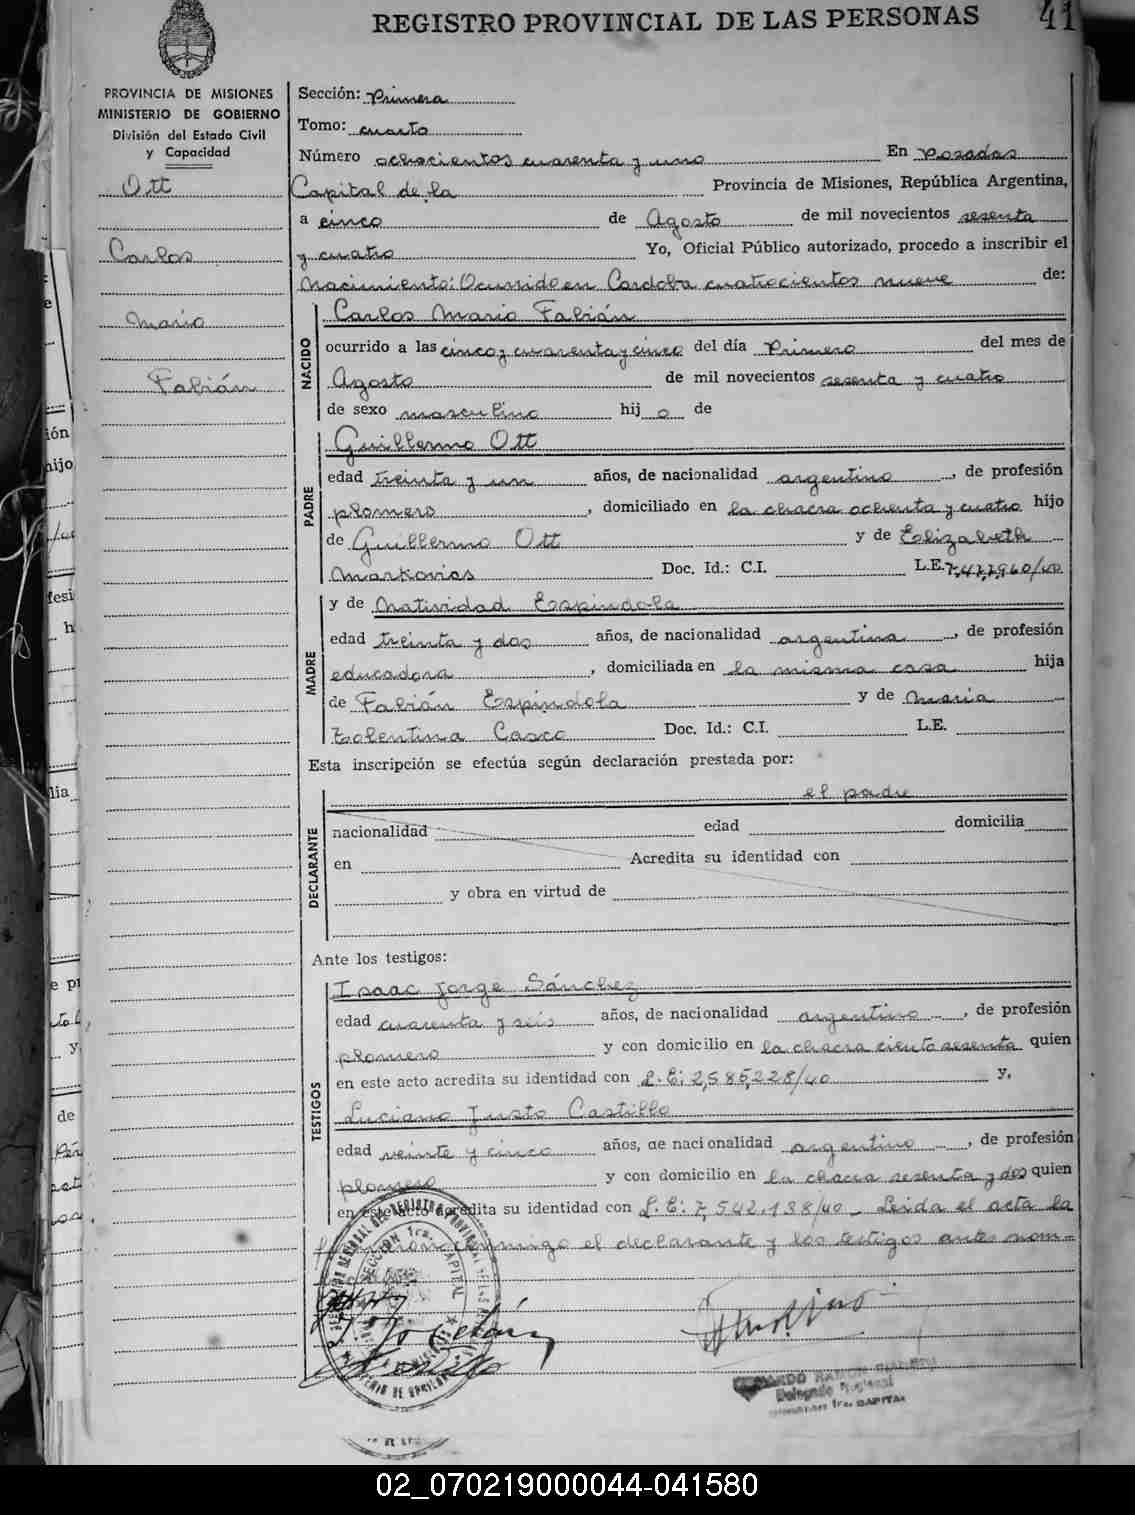 REGISTRO PROVINCIAL DE LAS PERSONAS
41
PROVINCIA DE MISIONES
MINISTERIO DE GOBIERNO
División del Estado Civil
y Capacidad
Ott
Carlos
Mario
Fabián
Sección: Primera
Tomo: cuarto
Número ochocientos cuarenta y uno En Posadas
Capital de la Provincia de Misiones, República Argentina,
a cinco de Agosto de mil novecientos sesenta
y cuatro Yo, Oficial Público autorizado, procedo a inscribir el
Nacimiento: Ocurrido en Cordoba cuatrocientos nueve de:
NACIDO
Carlos Mario Fabián
ocurrido a las cinco y cuarenta y cinco del día Primero del mes de
Agosto de mil novecientos sesenta y cuatro
de sexo masculino hij o de
PADRE
Guillermo Ott
edad treinta y un años, de nacionalidad argentino, de profesión
plomero, domiciliado en la chacra ochenta y cuatro hijo
de Guillermo Ott y de Elizabeth
Markovics Doc. Id.: C.I. L.E. 7,477,960/40
MADRE
y de Natividad Espíndola
edad treinta y dos años, de nacionalidad argentina, de profesión
educadora, domiciliada en la misma casa hija
de Fabián Espíndola y de María
Tolentina Casco Doc. Id.: C.I. L.E.
Esta inscripción se efectúa según declaración prestada por:
el padre
DECLARANTE
nacionalidad edad domicilia
en Acredita su identidad con
y obra en virtud de
Ante los testigos:
TESTIGOS
Isaac Jorge Sánchez
edad cuarenta y seis años, de nacionalidad argentino, de profesión
plomero y con domicilio en la chacra ciento sesenta quien
en este acto acredita su identidad con L.E: 2,585,228/40 y,
Luciano Justo Castillo
edad veinte y cinco años, de nacionalidad argentino, de profesión
plomero y con domicilio en la chacra sesenta y dos quien
en este acto acredita su identidad con L.E: 7,542.138/40 _ Leida el acta la
conmigo el declarante y los testigos antes nom-
SECCION 1ra. CAPITAL
Delegado Regional
1ra. CAPITAL
02_070219000044-041580